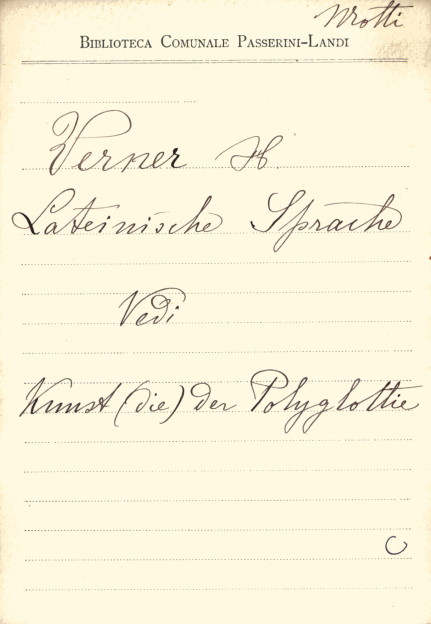 BIBLIOTECA COMUNALE PASSERINI-LANDI
Verner H.
Lateinische Sprache
Vedi
Kunst (die) der Polyglottie
C